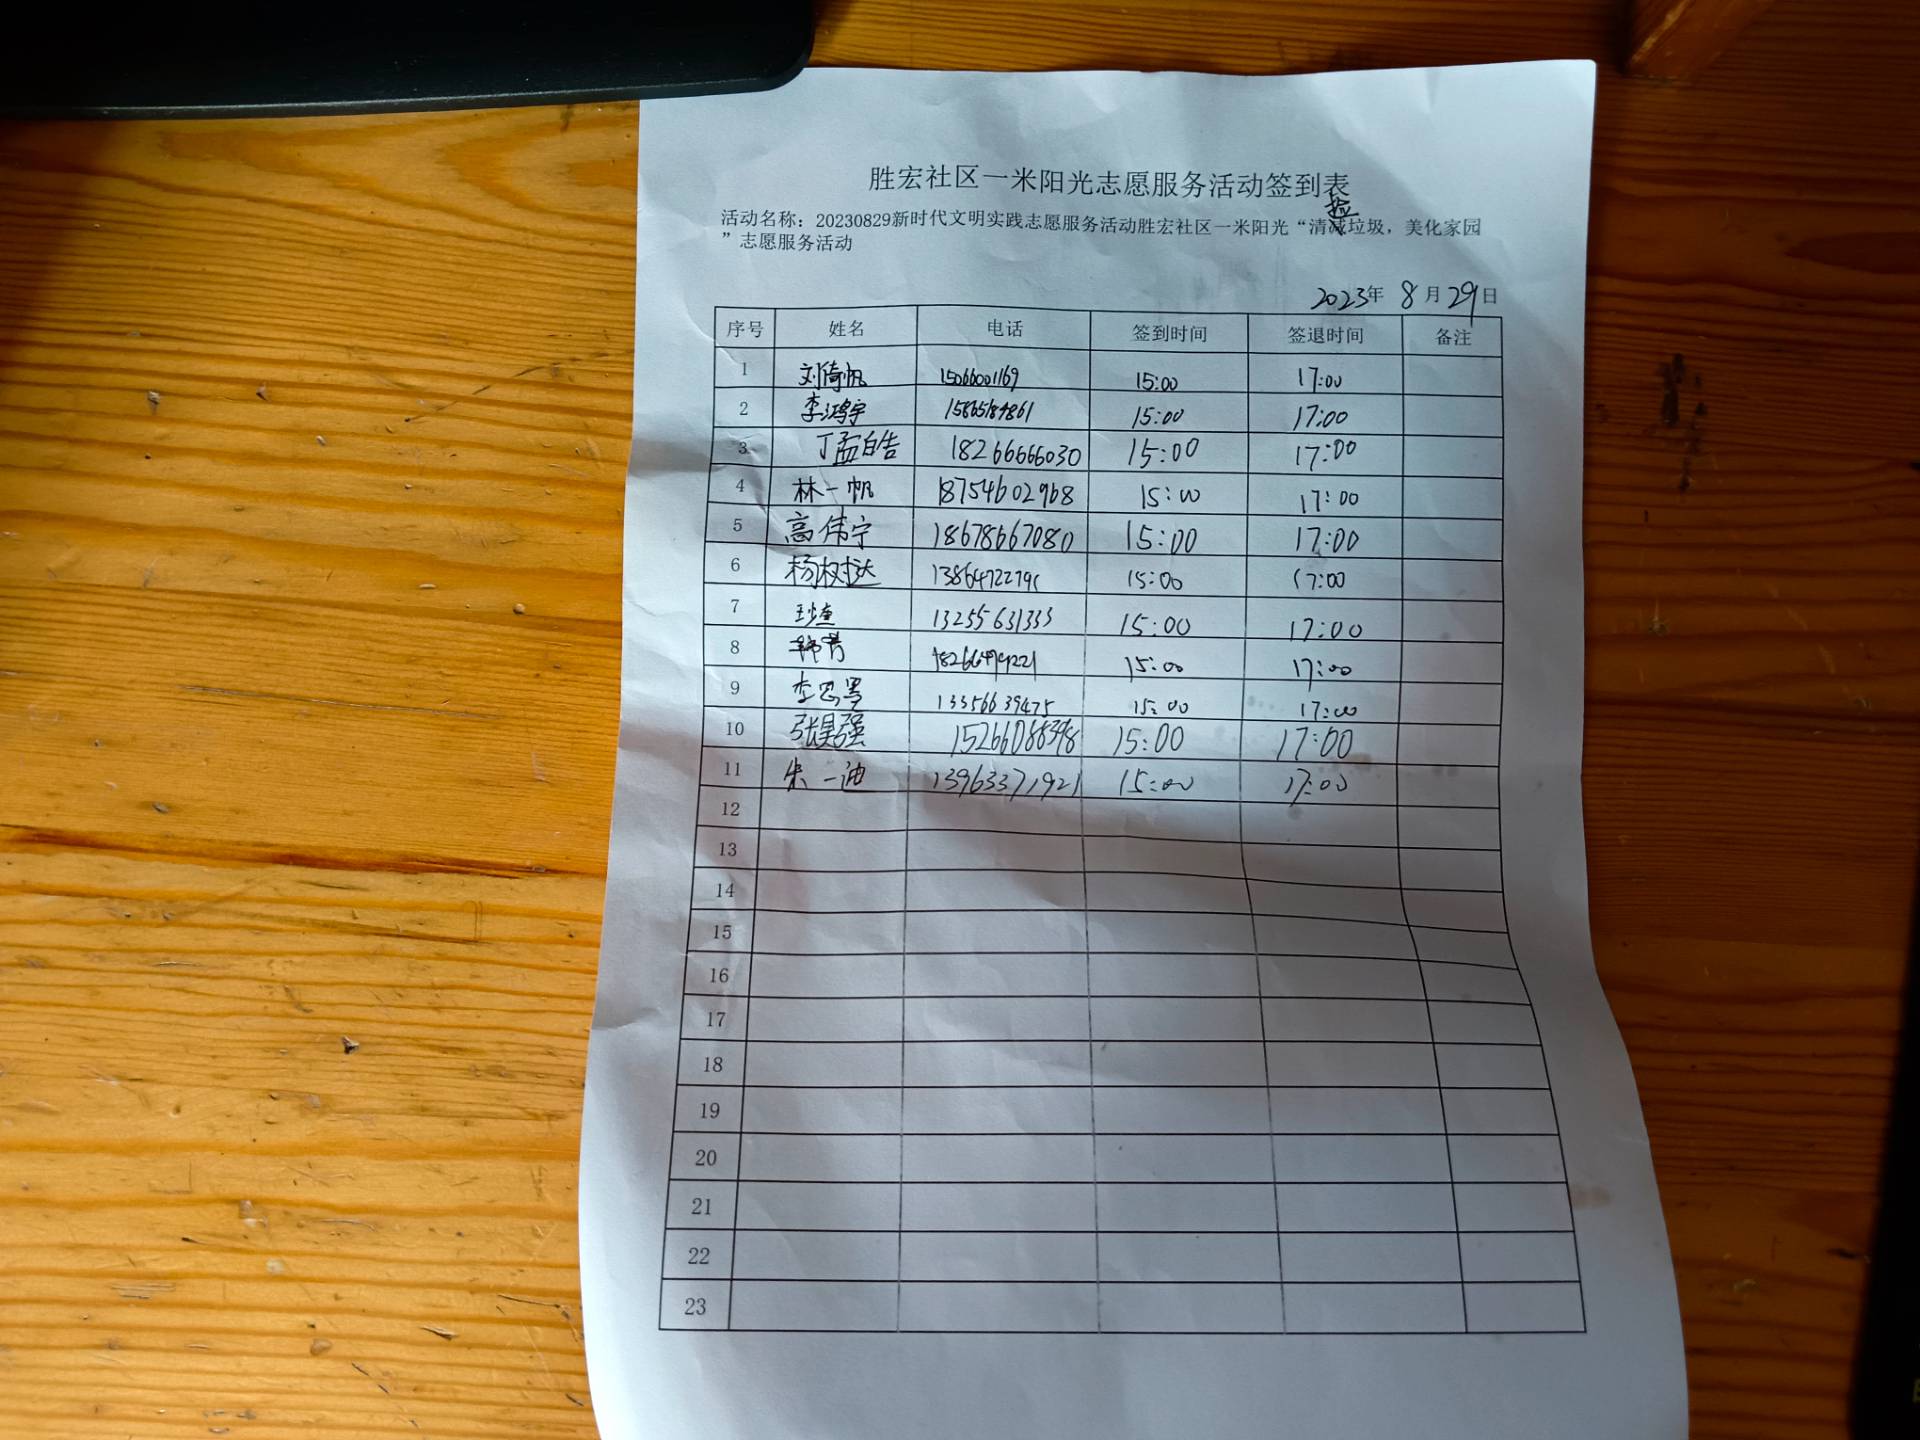 胜宏社区一米阳光志愿服务活动签到表
捡
活动名称：20230829新时代文明实践志愿服务活动胜宏社区一米阳光“清减垃圾，美化家园
”志愿服务活动
2023年 8月29日
序号 姓名 电话 签到时间 签退时间 备注
1 刘倚帆 15066001169 15:00 17:00
2 李鸿宇 15865184861 15:00 17:00
3 丁孟皓 18266666030 15:00 17:00
4 林一帆 18754602968 15:00 17:00
5 高伟宁 18678667080 15:00 17:00
6 杨树达 15:00 17:00
7 13255631333 15:00 17:00
8 15:00 17:00
9 李思 13356639475 15:00 17:00
10 张昊强 15:00 17:00
11 朱一迪 13963371921 15:00 17:00
12
13
14
15
16
17
18
19
20
21
22
23